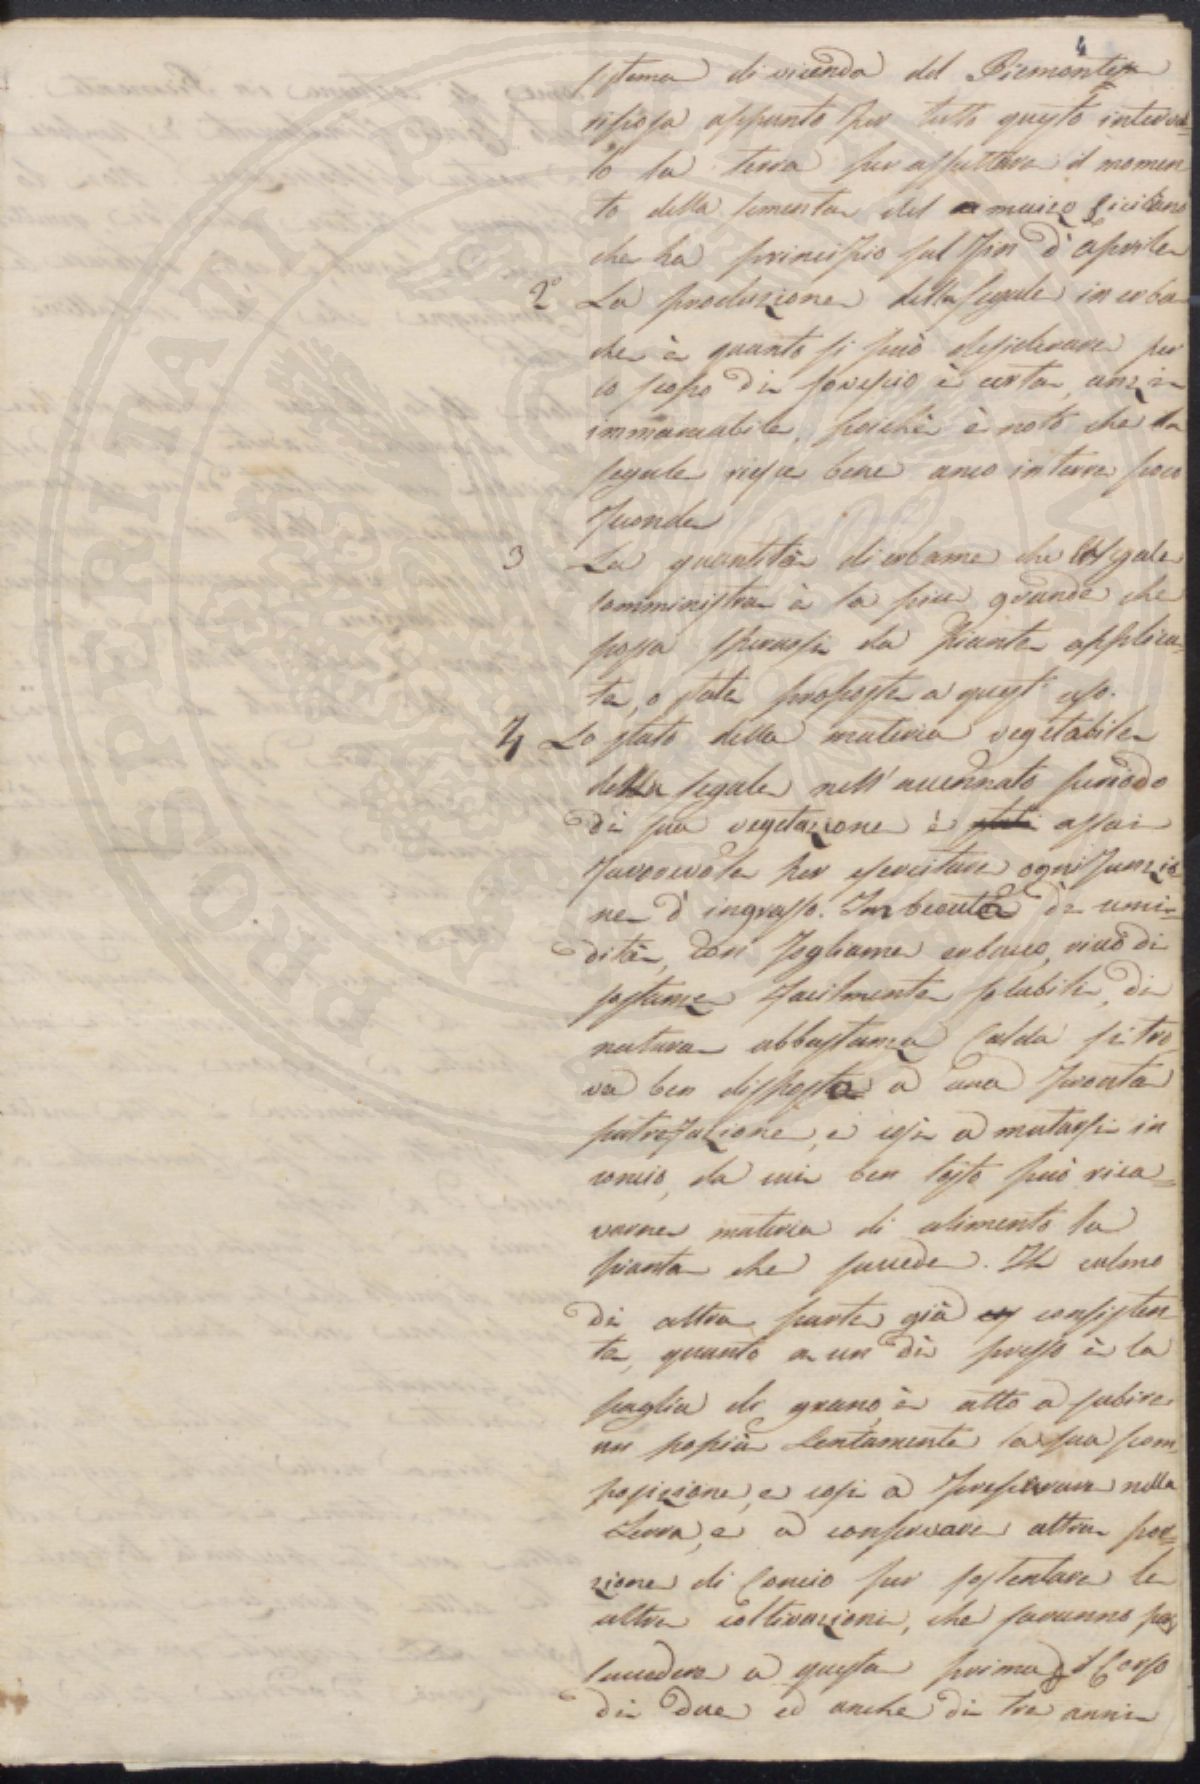 4
stema di vicenda del Piemonte
riposa appunto per tutto questo interval-
lo la terra per aspettare il momen
to della sementa del maizo siciliano
che ha principio sul fin d'aprile
2° La produzione della segale in erba
che è quanto si può desiderare per
lo scopo di sovescio è certa, anzi
immancabile, poichè è noto che la
segale riesce bene anco in terre poco
feconde
3 La quantità di erbame che la segale
somministra è la più grande che
possa sperarsi da piante applica-
te, o state proposte a quest'uso.
4 Lo stato della materia vegetabile
della segale nell'accennato periodo
di sua vegetazione è assai
favorevole per esercitare ogni funzio
ne d'ingrasso. Imbevuta di umi-
dità, con fogliame erbaceo, ricco di
sostanze facilmente solubili, di
natura abbastanza calda si tro
va ben disposta a una pronta
putrefazione, e così a mutarsi in
concio, da cui ben tosto può rica-
varne materia di alimento la
pianta che succede. Il culmo
di altra parte già consisten
te, quanto a un di presso è la
paglia di grano, è atto a subire
un po più lentamente la sua scom
posizione, e così a preservare nella
terra, e a conservare altra por-
zione di concio per sostentare le
altre coltivazioni, che saranno per
succedere a questa prima il corso
di due ed anche di tre anni
PERITATI PVBLICAE PROS